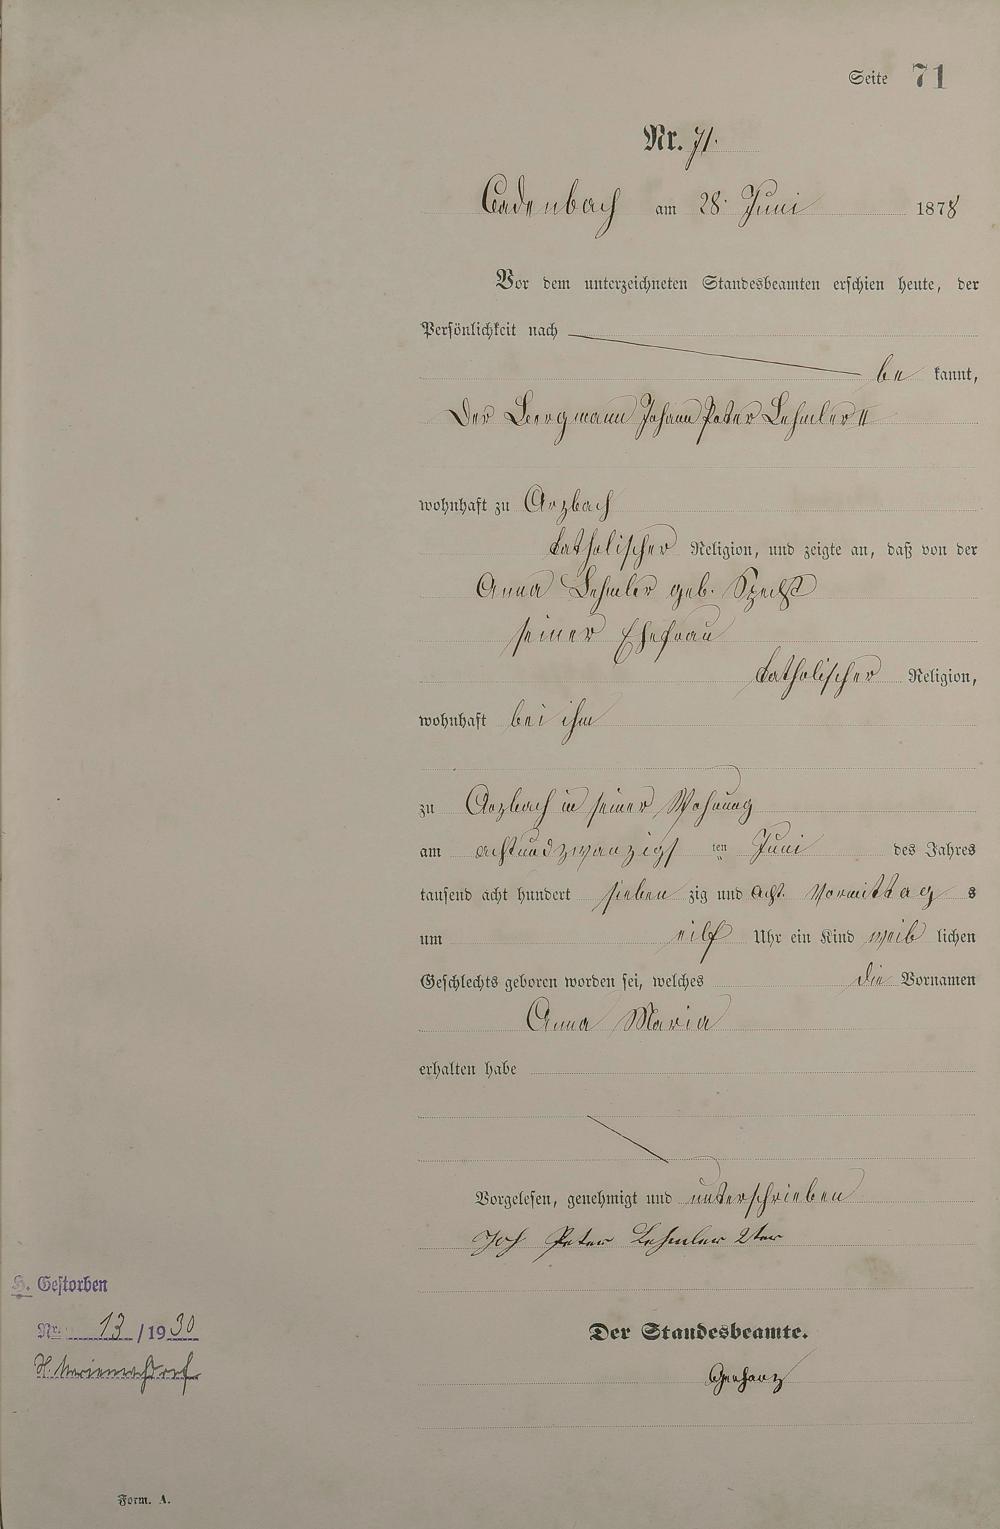 Seite 71
Nr. 71.
Cadenbach am 28. Juni 1878
Vor dem unterzeichneten Standesbeamten erschien heute, der
Persönlichkeit nach
be kannt,
der Bergmann Johann Peter Lehmler II
wohnhaft zu Arzbach
katholischer Religion, und zeigte an, daß von der
Anna Lehmler geb. Specht
seiner Ehefrau
katholischer Religion,
wohnhaft bei ihm
zu Arzbach in seiner Wohnung
am achtundzwanzigs ten Juni des Jahres
tausend acht hundert sieben zig und acht Vormittag s
um eilf Uhr ein Kind weib lichen
Geschlechts geboren worden sei, welches die Vornamen
Anna Maria
erhalten habe
Vorgelesen, genehmigt und unterschrieben
Joh Peter Lehmler 2ter
H. Gestorben
Nr. 13 / 1930
Der Standesbeamte.
Form. A.